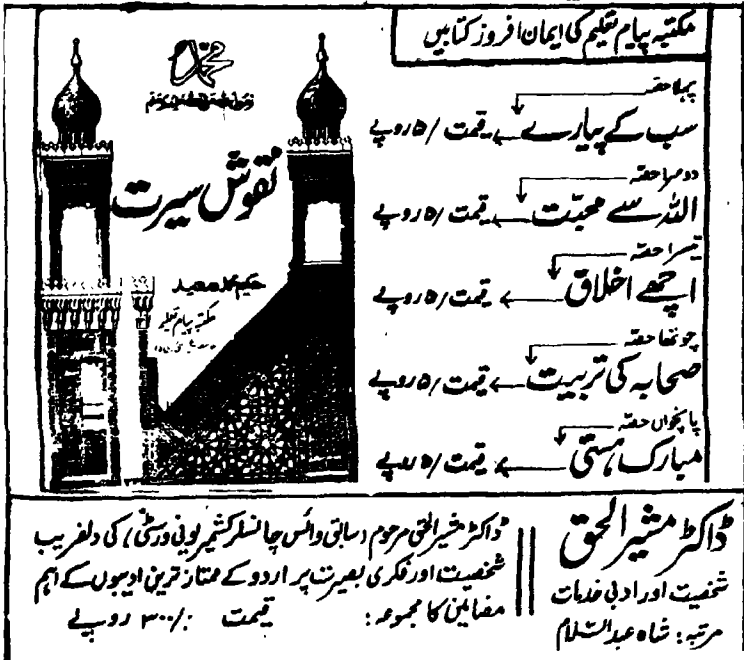 مکتبہ پیام تعلیم کی ایمان افروز کتابیں
پہلا حصہ
سب کے پیارے قیمت ۵/ روپے
دوسرا حصہ
اللہ سے محبت قیمت ۵/ روپے
تیسرا حصہ
اچھے اخلاق قیمت ۵/ روپے
چوتھا حصہ
صحابہ کی تربیت قیمت ۵/ روپے
پانچواں حصہ
مبارک ہستی قیمت ۵/ روپے
محمد
نقوش سیرت
حکیم محمد سعید
مکتبہ پیام تعلیم
ڈاکٹر مشیر الحق
شخصیت اور ادبی خدمات
مرتبہ: شاہ عبدالسّلام
ڈاکٹر مشیر الحق مرحوم (سابق وائس چانسلر کشمیر یونی ورسٹی) کی دلفریب
شخصیت اور فکری بصیرت پر اردو کے ممتاز ترین ادیبوں کے اہم
مضامین کا مجموعہ: قیمت ۳۰۰/: روپیے